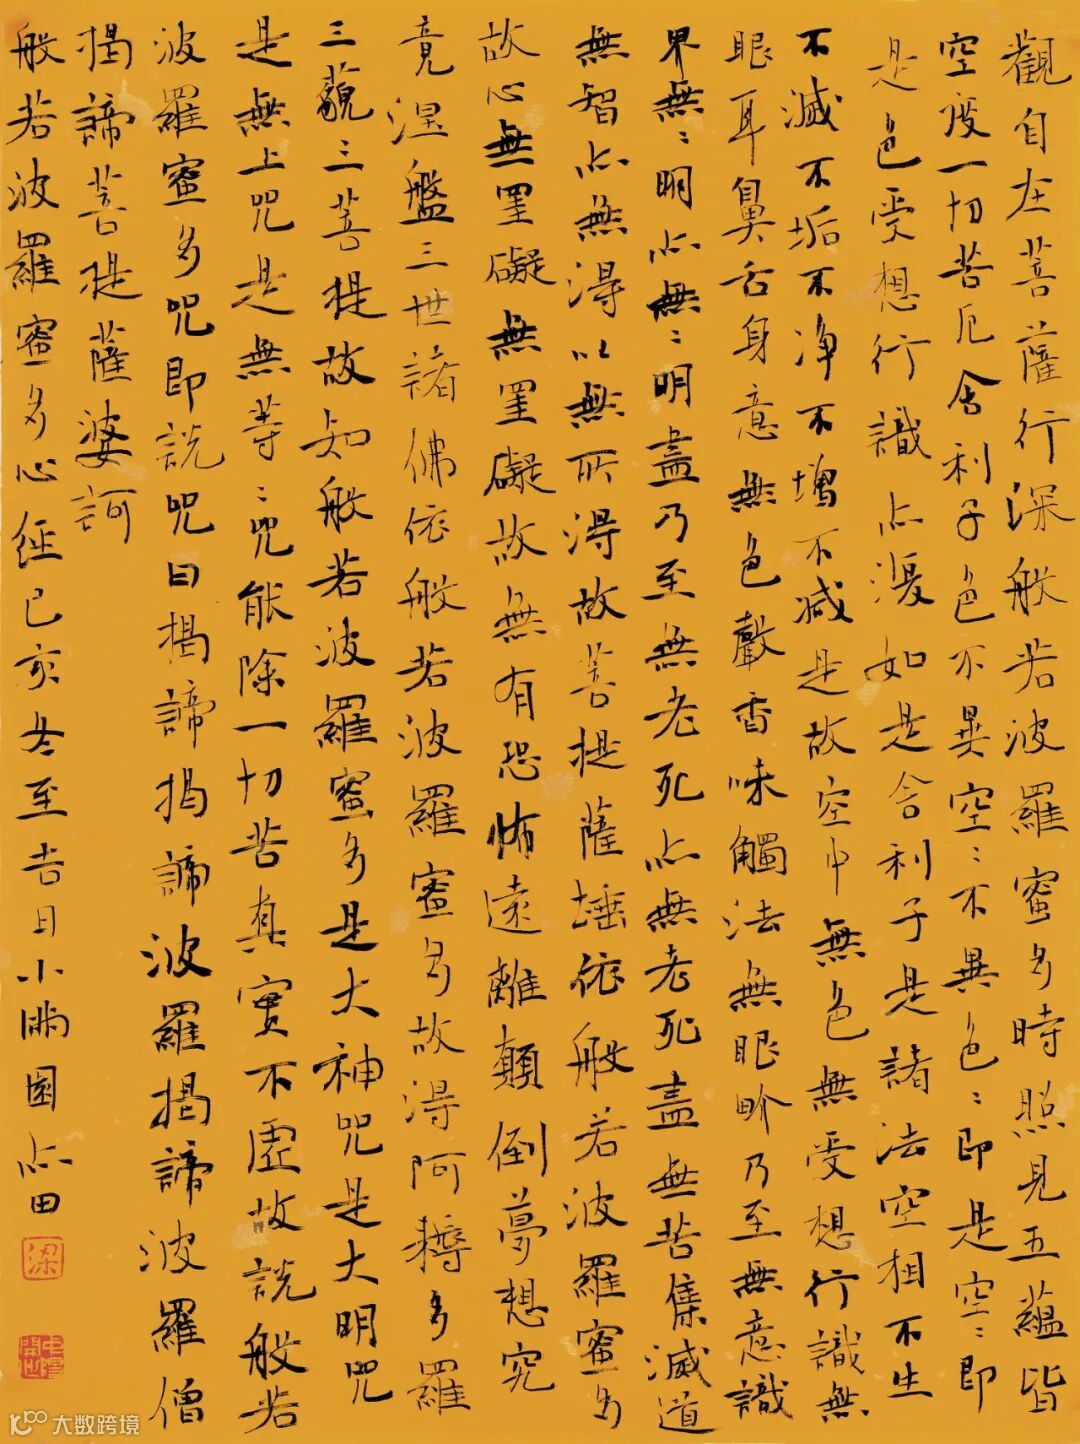 觀自在菩薩行深般若波羅蜜多時照見五蘊皆
空度一切苦厄舍利子色不異空:不異色:即是空:即
是色受想行識亦復如是舍利子是諸法空相不生
不滅不垢不净不增不減是故空中無色無受想行識無
眼耳鼻舌身意無色聲香味觸法無眼畍乃至無意識
界無:明亦無:明盡乃至無老死亦無老死盡無苦集滅道
無智亦無得以無所得故菩提薩埵依般若波羅蜜多
故心無罣礙無罣礙故無有恐怖遠離顛倒夢想究
竟涅盤三世諸佛依般若波羅蜜多故得阿耨多羅
三藐三菩提故知般若波羅蜜多是大神咒是大明咒
是無上咒是無等:咒能除一切苦真實不虛故説般若
波羅蜜多咒即説咒曰揭諦揭諦波羅揭諦波羅僧
揭諦菩提薩婆訶
般若波羅蜜多心經已亥冬至吉日小園亦田
梁
大数跨境